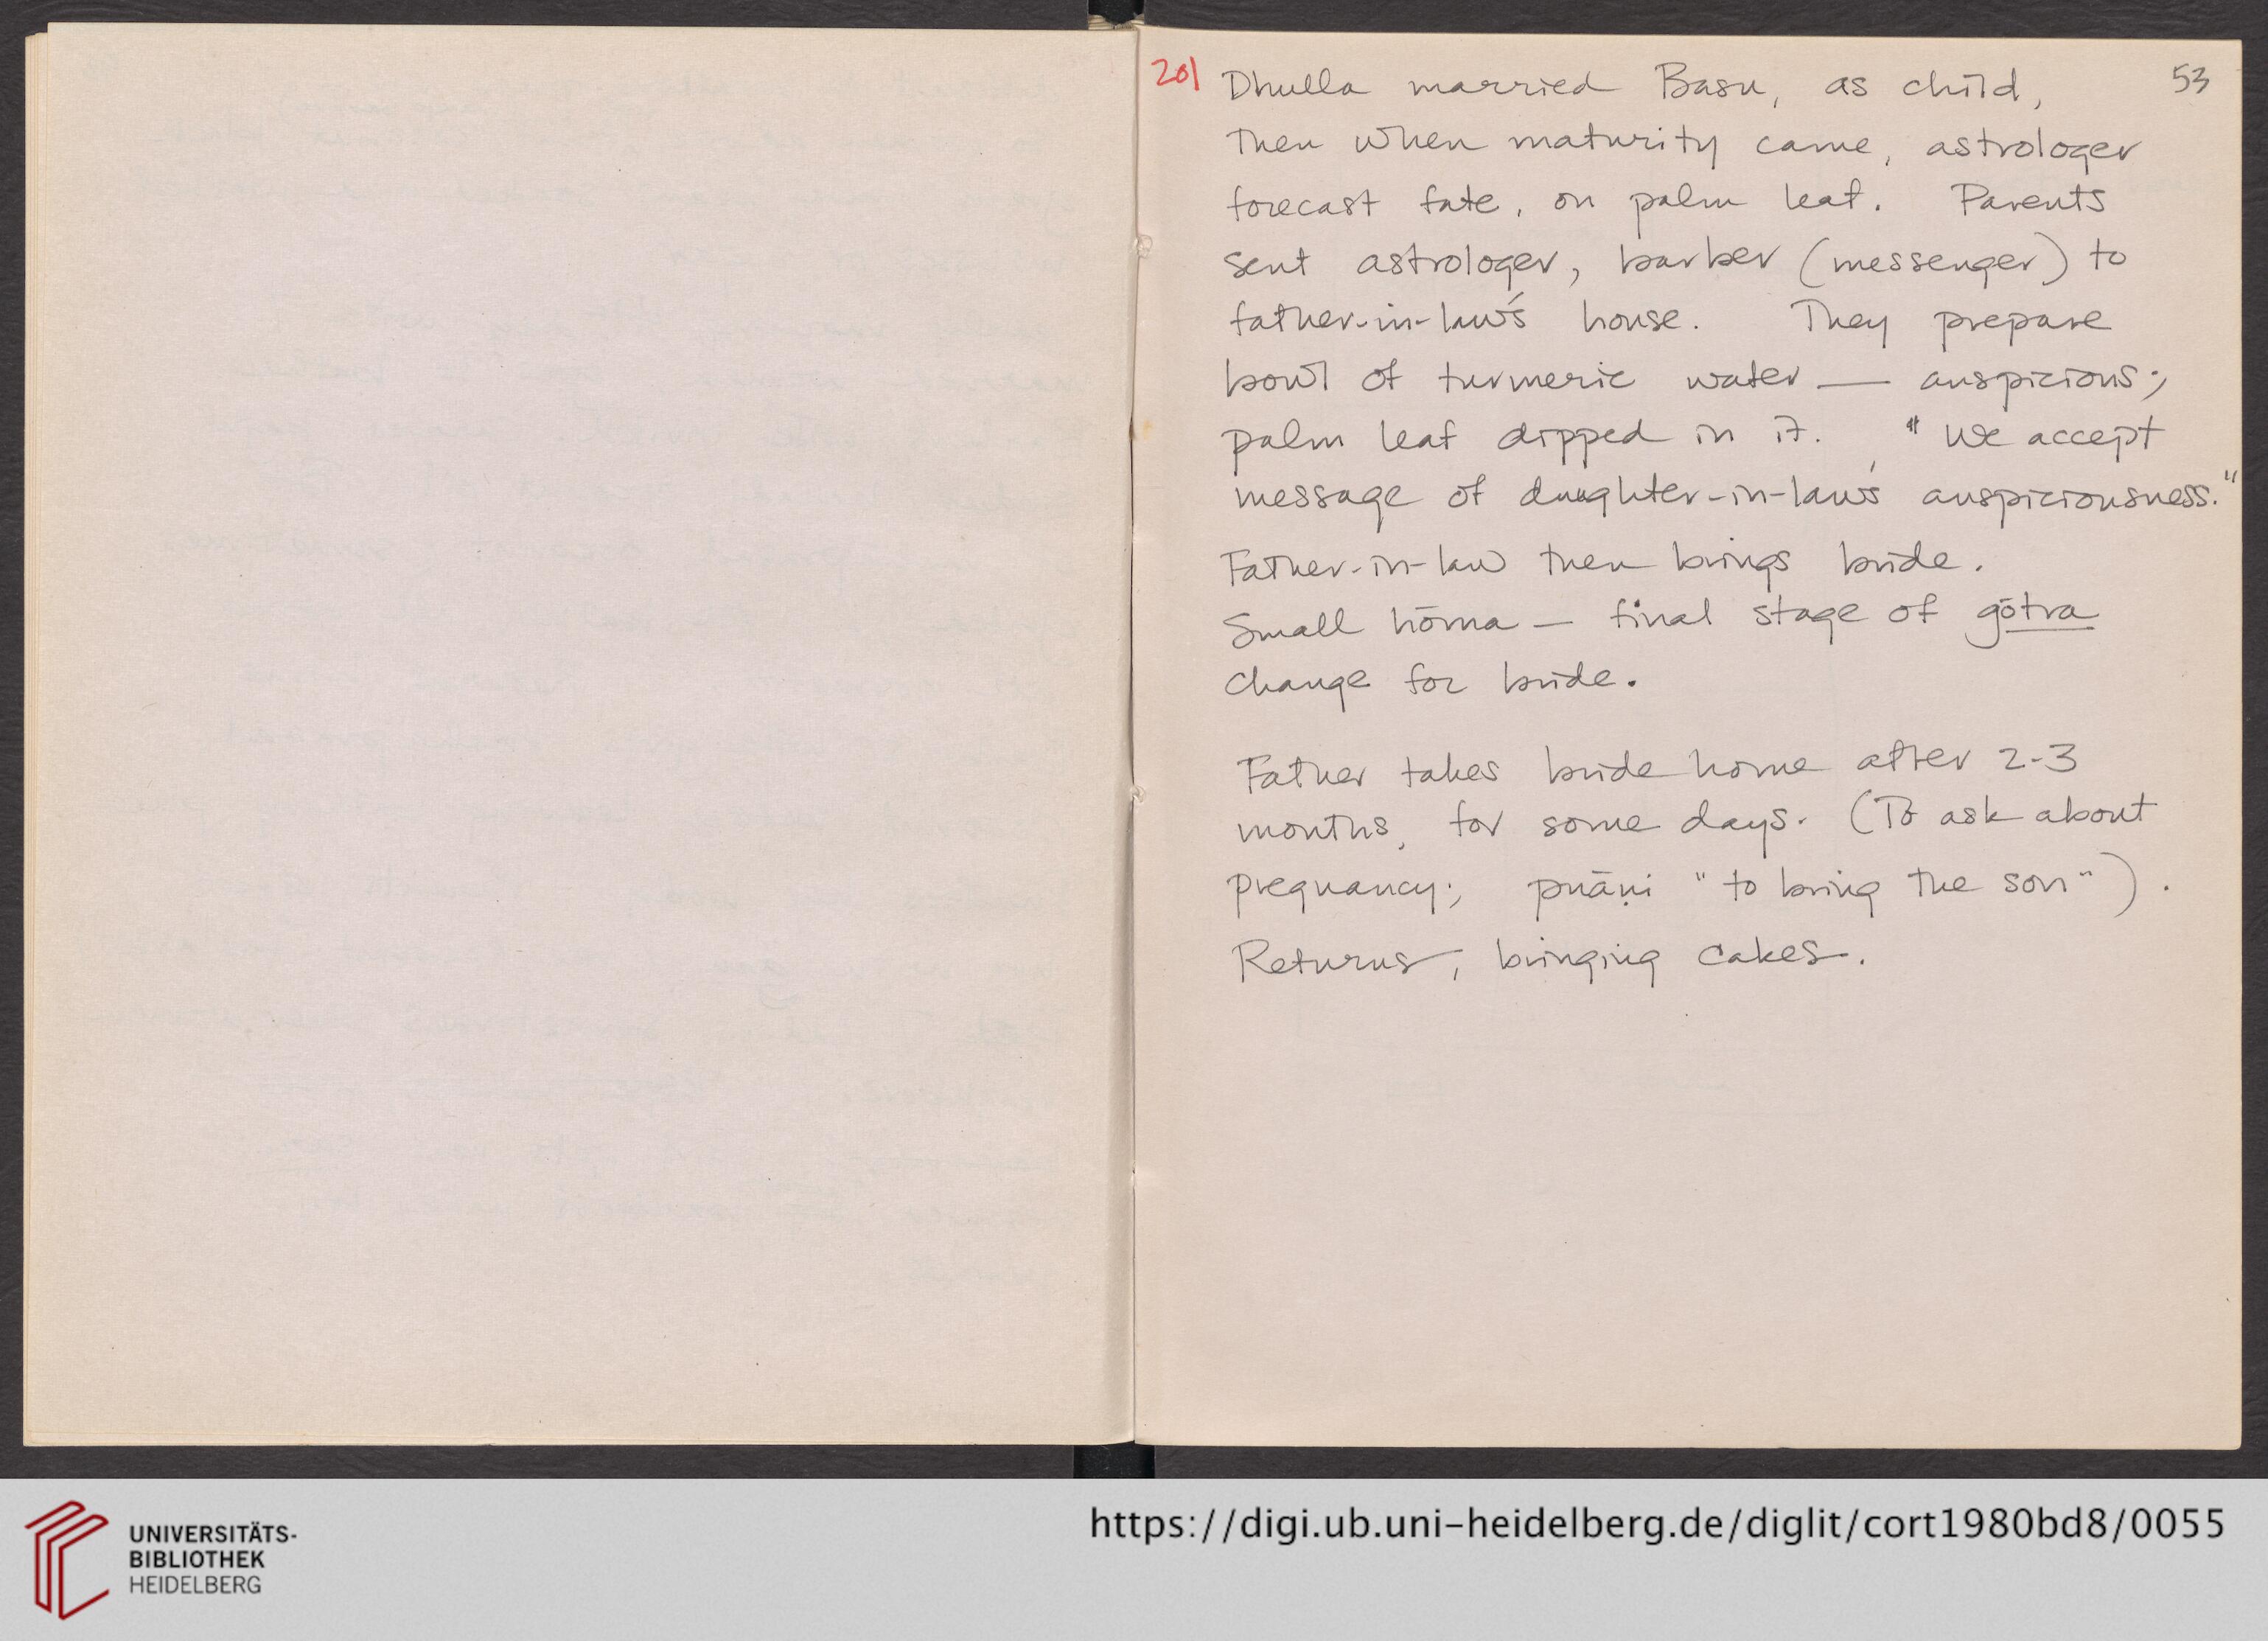 201 Dhulla married Basu, as child, 53
then when maturity came, astrologer
forecast fate, on palm leaf. Parents
sent astrologer, barber (messenger) to
father-in-law's house. They prepare
bowl of turmeric water — auspicious;
palm leaf dipped in it. "We accept
message of daughter-in-law's auspiciousness."
Father-in-law then brings bride.
Small hōma — final stage of gōtra
change for bride.
Father takes bride home after 2-3
months, for some days. (To ask about
pregnancy; puāṇi "to bring the son").
Returns, bringing cakes.
UNIVERSITÄTS-
BIBLIOTHEK
HEIDELBERG
https://digi.ub.uni-heidelberg.de/diglit/cort1980bd8/0055